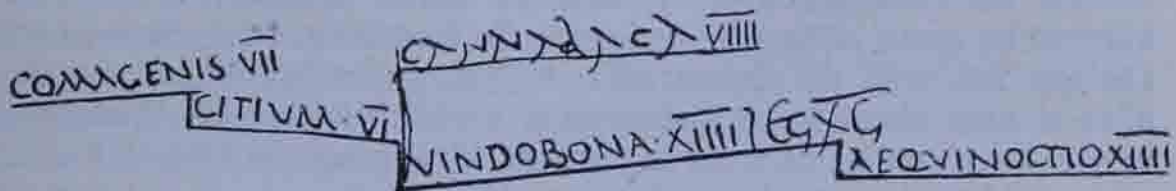 VIIII
COMAGENIS·VII
CITIVM·VI
VINDOBONA·XIIII
AEQVINOCTIO XIIII